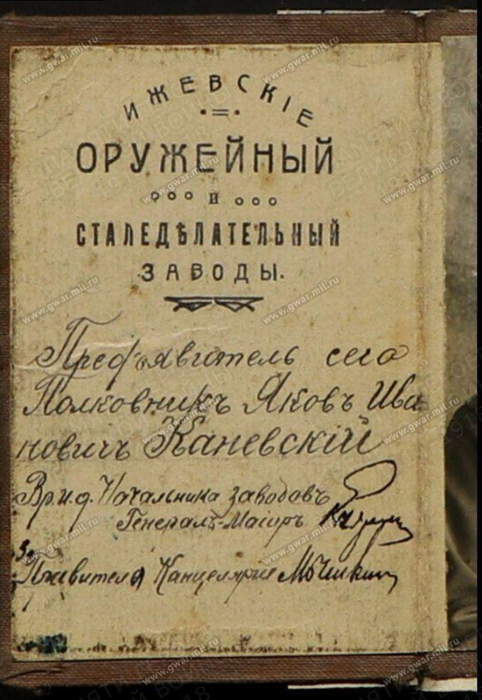 ИЖЕВСКІЕ
ОРУЖЕЙНЫЙ
и
СТАЛЕДѢЛАТЕЛЬНЫЙ
ЗАВОДЫ.
Предъявитель сего
Полковникъ Яковъ Ива
новичъ Каневскій
Вр.и.д. Начальника заводовъ
Генералъ-Маіоръ
За
Правителя Канцеляріи
www.gwar.mil.ru